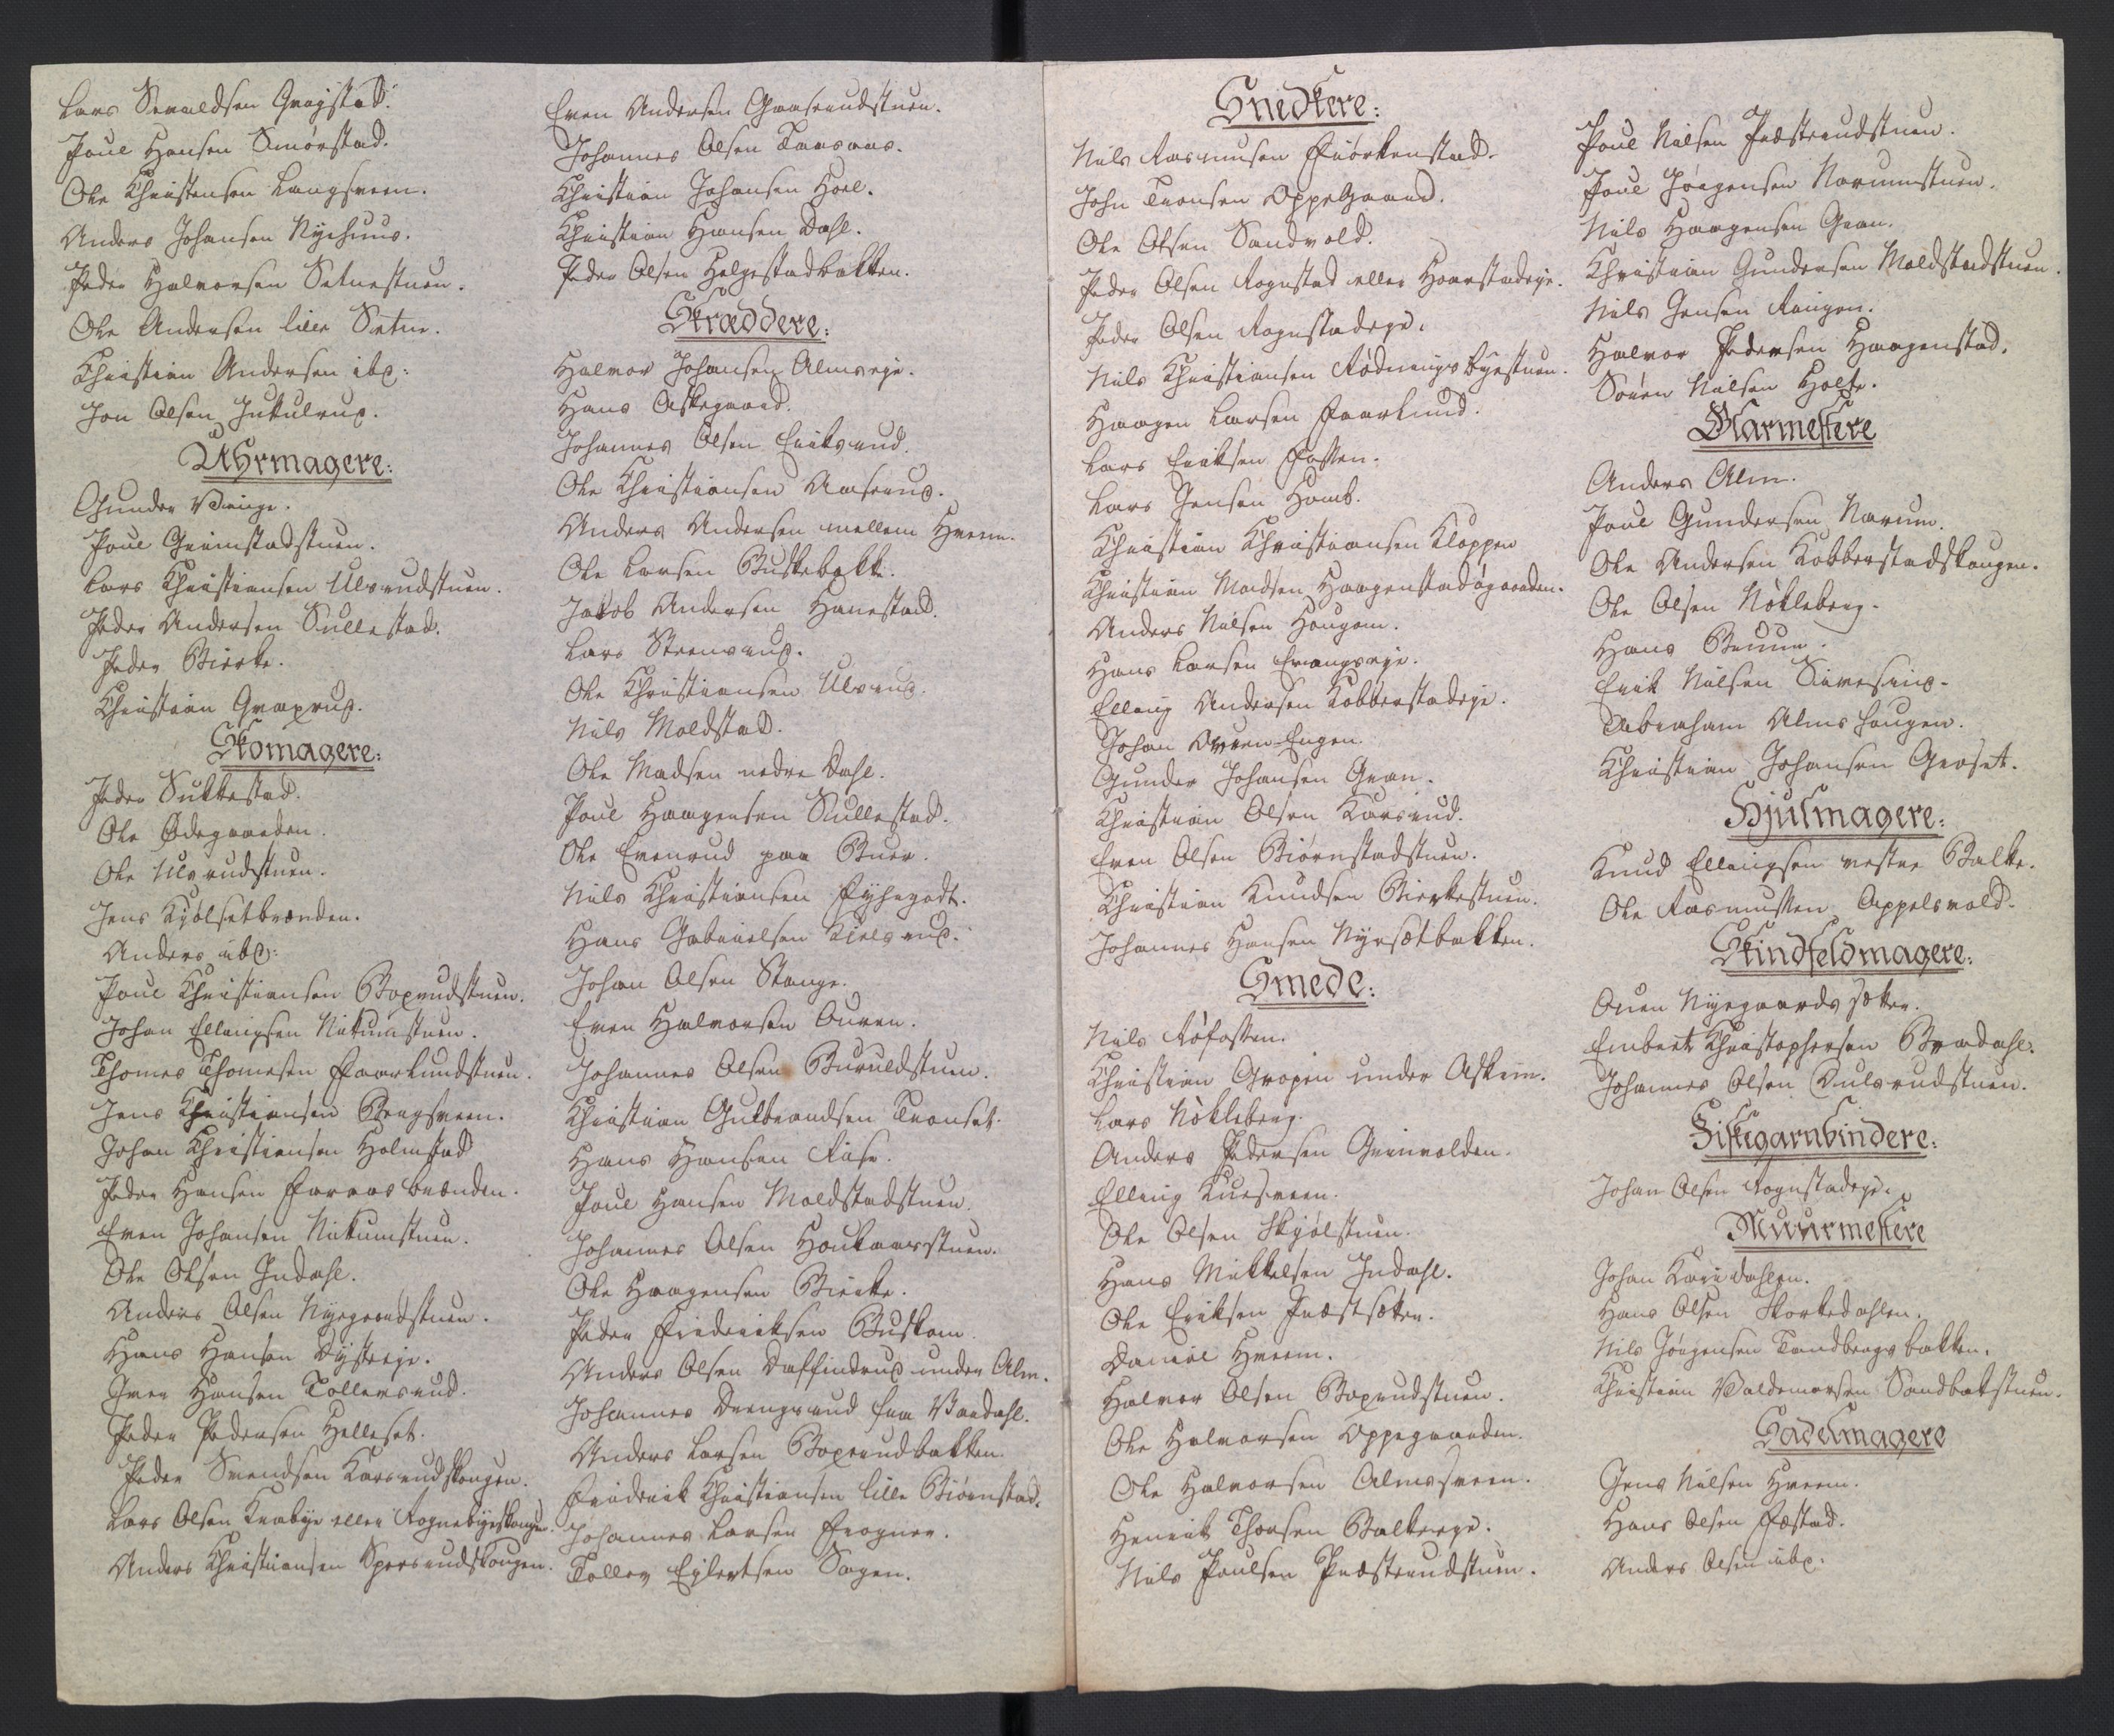 Lars Svendsen Gragstad.
Poul Hansen Smørstad.
Ole Christensen Langsveen.
Anders Johansen Nyehuus.
Peder Halvorsen Sætnestuen.
Ole Andersen lille Sætne.
Christian Andersen ibd:
Jon Olsen Jutulrud.
Uhrmagere:
Gunder Vinge.
Poul Grimstadstuen.
Lars Christiansen Ulsrudstuen.
Peder Andersen Sullestad.
Peder Bierke.
Christian Graxrud.
Skomagere:
Peder Sukkestad.
Ole Ødegaarden.
Ole Ulsrudstuen.
Jens Kjølsetbrænden.
Anders ibd:
Poul Christiansen Boxrudstuen.
Johan Ellingsen Nikumstuen.
Thomes Thomesen Faarlundstuen.
Jens Christiansen Bergsveen.
Johan Christiansen Holmstad
Peder Hansen Faraasbrænden.
Even Johansen Nikumstuen.
Ole Olsen Indahl.
Anders Olsen Nyegaardstuen.
Hans Hansen Dysteeje.
Iver Hansen Tollersrud.
Peder Pedersen Helleset.
Peder Svendsen Karsrudskougen.
Lars Olsen Krabye eller Rognebyeskougen.
Anders Christiansen Sporsrudskougen.
Even Andersen Gaaserudstuen.
Johannes Olsen Taasaas.
Christian Johansen Hoel.
Christian Hansen Dahl.
Peder Olsen Helgestadbakken.
Skræddere:
Halvor Johansen Almseje.
Hans Askegaard.
Johannes Olsen Eriksrud.
Ole Christiansen Aaserud.
Anders Andersen mellem Hveem.
Ole Larsen Buskebakke.
Jakob Andersen Hanestad.
Lars Steensrud.
Ole Christiansen Ulsrud.
Nils Moldstad.
Ole Madsen nedre Dahl.
Poul Haagensen Rullestad.
Ole Evenrud paa Buer.
Nils Christiansen Fyhegodt.
Hans Gabrielsen Kielsrud.
Johan Olsen Stange.
Even Halvorsen Ouren.
Johannes Olsen Buruldstuen.
Christian Gulbrandsen Tronset.
Hans Hansen Rise.
Poul Hansen Moldstadstuen.
Johannes Olsen Houkaasstuen.
Ole Haagensen Bierke.
Peder Fridriksen Buskom
Anders Olsen Daffindrud under Alm.
Johannes Drengsrud fra Vardahl.
Anders Larsen Boxrudbakken.
Fridrik Christiansen lille Biørnstad.
Johannes Larsen Frogner.
Tollev Eylertsen Sogen.
Snedkere:
Nils Rasmusen Fiørkenstad.
John Tronsen Oppegaard.
Ole Olsen Sandvold.
Peder Olsen Rognstad eller Hoarstadeje.
Peder Olsen Rognstadeje.
Nils Christiansen Rødningsbyestuen.
Haagen Larsen Faarlund.
Lars Eriksen Fossen.
Lars Jensen Homb.
Christian Christiansen Kloppen
Christian Madsen Haagenstadøgaarden.
Anders Nilsen Hougom.
Hans Larsen Evangseje.
Elling Andersen Kobberstadeje.
Johan Øvren-Engen.
Gunder Johansen Gran.
Christian Olsen Karsrud.
Even Olsen Biørnstadstuen.
Christian Knudsen Bierkestuen.
Johannes Hansen Nyesætbakken.
Smede:
Nils Røfossen.
Christian Gropen under Askim.
Lars Nøkleberg.
Anders Pedersen Grimvolden.
Elling Kuesveen.
Ole Olsen Skjølstuen.
Hans Mikkelsen Indahl.
Ole Eriksen Præstsæter.
Daniel Hveem.
Halvor Olsen Boxrudstuen.
Ole Halvorsen Oppegaarden.
Ole Halvorsen Almssveen.
Henrik Thorsen Balkeeje.
Nils Poulsen Præsterudstuen.
Poul Nilsen Præsterudstuen.
Poul Jørgensen Narumstuen.
Nils Haagensen Gran.
Christian Gundersen Moldstadstuen.
Nils Jensen Ringen.
Halvor Pedersen Haagenstad.
Søren Nilsen Holte.
Glarmestere
Anders Alm.
Poul Gundersen Narum.
Ole Andersen Kobberstadskougen.
Ole Olsen Nøkleberg.
Hans Bruun.
Erik Nilsen Sivesind.
Abraham Almshaugen.
Christian Johansen Groset.
Hjulmagere:
Knud Ellingsen vestre Balke.
Ole Rasmussen Appelsvold.
Skindfeldmagere:
Ouen Nyegaardssæter.
Embert Christophersen Bredahl.
Johannes Olsen Dulsrudstuen.
Fiskegarnbindere:
Johan Olsen Rognstadeje.
Muurmestere
Johan Karidahlen.
Hans Olsen Skorkedahlen.
Nils Jørgensen Tandbergsbakken.
Christian Valdemarsen Sandbakstuen.
Sadelmagere
Jens Nilsen Hveem.
Hans Olsen Sæstad.
Anders Olsen ibd.